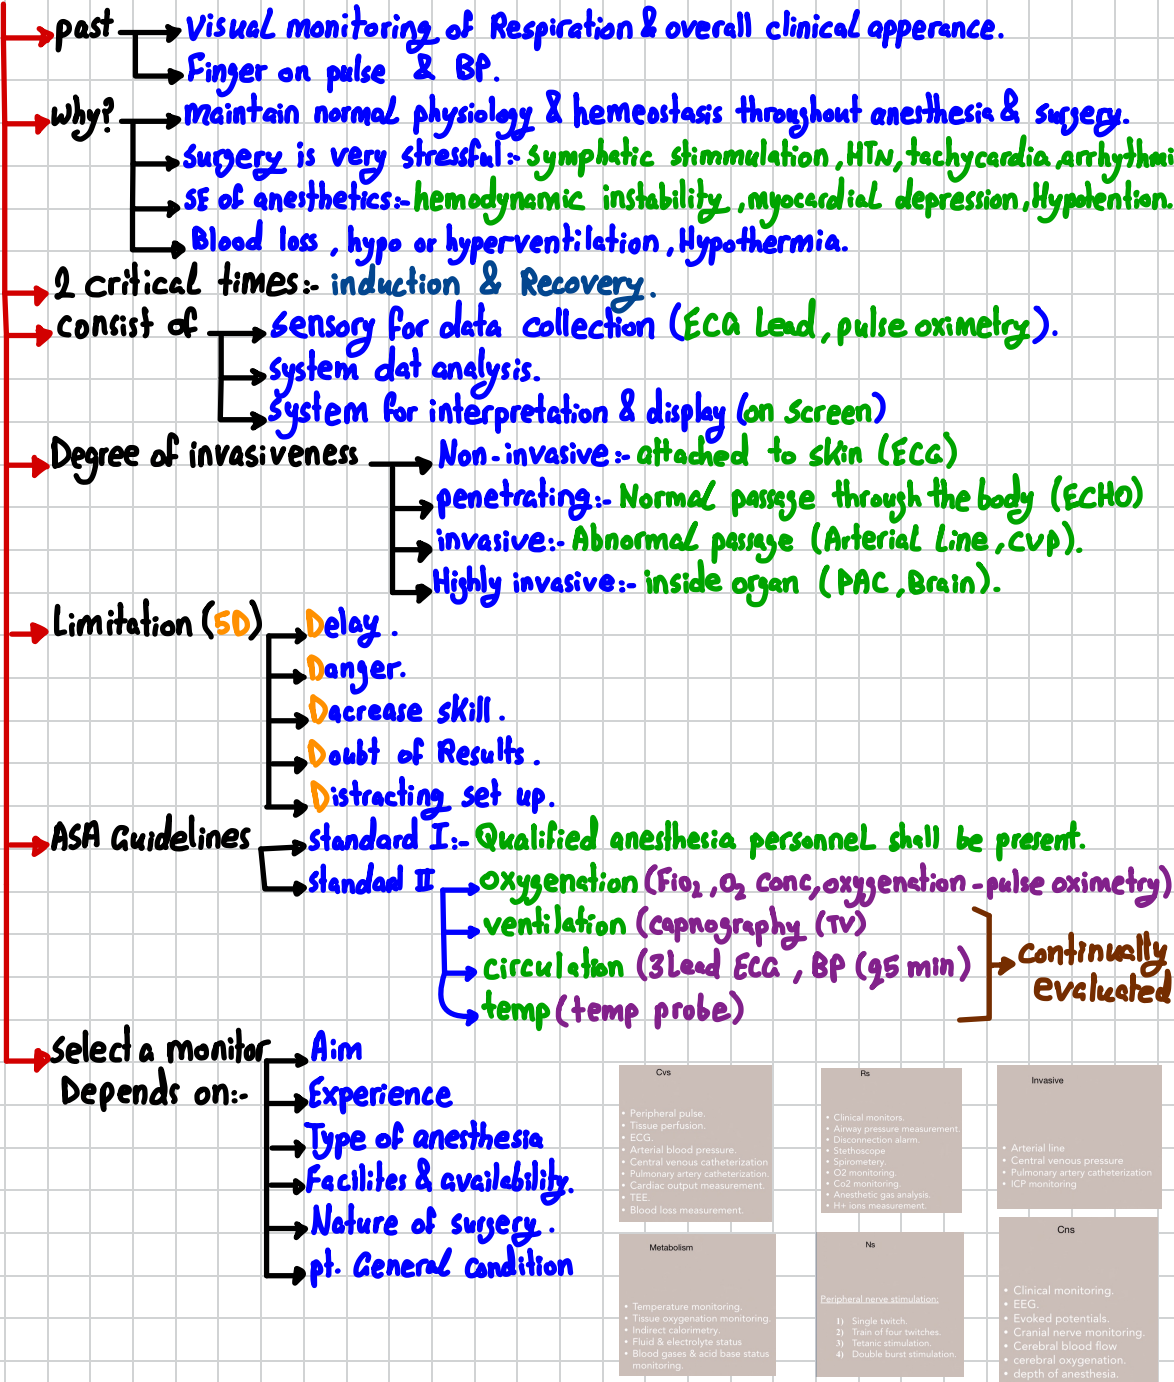 past
Visual monitoring of Respiration & overall clinical apperance.
Finger on pulse & BP.
why?
maintain normal physiology & hemeostasis throughout anesthesia & surgery.
surgery is very stressful:- symphatic stimmulation, HTN, tachycardia, arrhythmi
SE of anesthetics:- hemodynamic instability, myocardial depression, Hypotention.
Blood loss, hypo or hyperventilation, Hypothermia.
2 critical times:- induction & Recovery.
consist of
sensory for data collection (ECG Lead, pulse oximetry).
system dat analysis.
system for interpretation & display (on screen)
Degree of invasiveness
Non-invasive:- attached to skin (ECG)
penetrating:- Normal passage through the body (ECHO)
invasive:- Abnormal passage (Arterial Line, CVP).
Highly invasive:- inside organ (PAC, Brain).
Limitation (5D)
Delay.
Danger.
Dacrease skill.
Doubt of Results.
Distracting set up.
ASA Guidelines
standard I:- Qualified anesthesia personnel shall be present.
standard II
oxygenation (Fio2, O2 conc, oxygenation - pulse oximetry)
ventilation (capnography (TV)
circulation (3 Lead ECG, BP (q5 min)
temp (temp probe)
continually
evaluated
select a monitor
Depends on:-
Aim
Experience
Type of anesthesia
Facilites & availability.
Nature of surgery.
pt. General condition
Cvs
• Peripheral pulse.
• Tissue perfusion.
• ECG.
• Arterial blood pressure.
• Central venous catheterization
• Pulmonary artery catheterization.
• Cardiac output measurement.
• TEE.
• Blood loss measurement.
Rs
• Clinical monitors.
• Airway pressure measurement.
• Disconnection alarm.
• Stethoscope
• Spirometery.
• O2 monitoring.
• Co2 monitoring.
• Anesthetic gas analysis.
• H+ ions measurement.
Invasive
• Arterial line
• Central venous pressure
• Pulmonary artery catheterization
• ICP monitoring
Metabolism
• Temperature monitoring.
• Tissue oxygenation monitoring.
• Indirect calorimetry.
• Fluid & electrolyte status
• Blood gases & acid base status
monitoring.
Ns
Peripheral nerve stimulation:
1) Single twitch.
2) Train of four twitches.
3) Tetanic stimulation.
4) Double burst stimulation.
Cns
• Clinical monitoring.
• EEG.
• Evoked potentials.
• Cranial nerve monitoring.
• Cerebral blood flow
• cerebral oxygenation.
• depth of anesthesia.